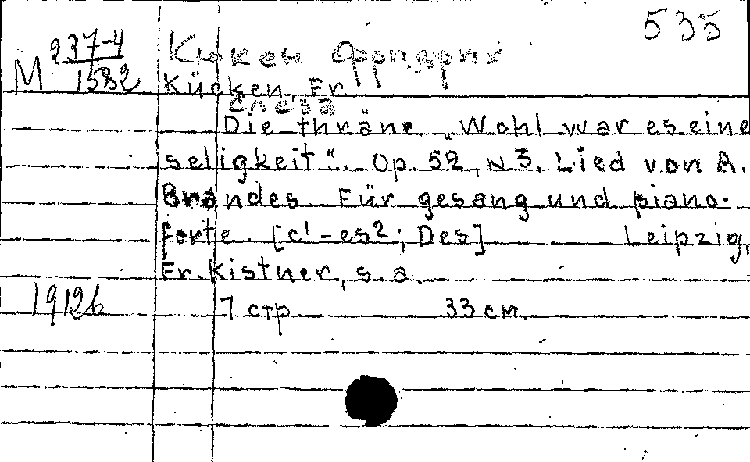 535
М 237-4
1582
Кюкен Фридрих
Kücken, Fr.
Слеза
Die thräne „Wohl war es eine
seligkeit". Op. 52, N 3. Lied von A.
Brandes. Für gesang und piano-
forte. [c¹-es²; Des] Leipzig,
Fr. Kistner, s. a.
1912б 7 стр. 33 см.